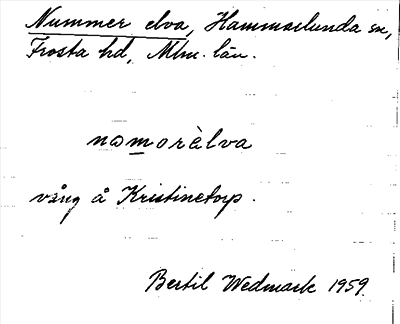 Nummer elva, Hammarlunda sn,
Frosta hd, Mlm. län.
nωmorèlva
vång å Kristinetorp.
Bertil Wedmark 1959.